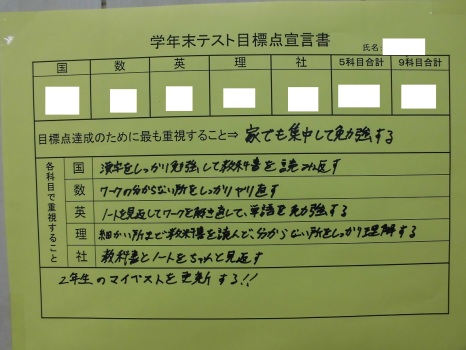 学年末テスト目標点宣言書
氏名:
国 数 英 理 社 5科目合計 9科目合計
目標点達成のために最も重視すること⇒ 家でも集中して勉強する
各科目で重視すること
国 漢字をしっかり勉強して教科書を読み返す
数 ワークの分からない所をしっかりやり直す
英 ノートを見返してワークを解き直して、単語を勉強する
理 細かい所まで教科書を読んで、分からない所をしっかり理解する
社 教科書とノートをちゃんと見返す
2年生のマイベストを更新する!!